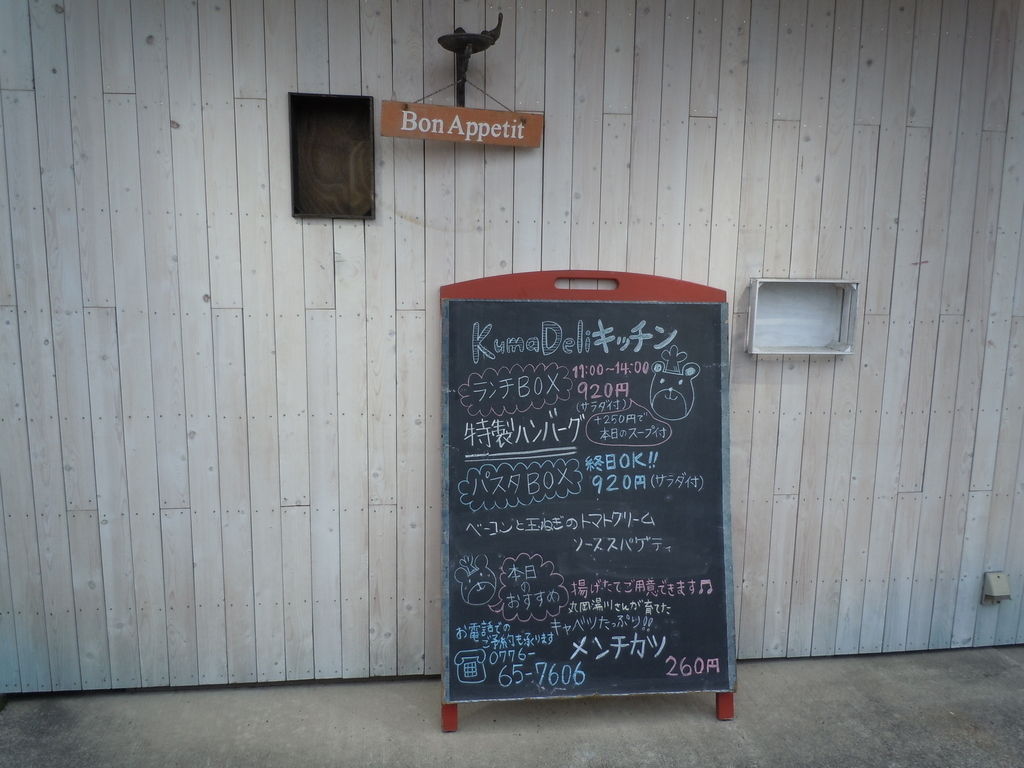 Bon Appetit
KumaDeliキッチン
ランチBOX
11:00~14:00
920円
(サラダ付)
特製ハンバーグ
+250円で
本日のスープ付
パスタBOX
終日OK!!
920円(サラダ付)
ベーコンと玉ねぎのトマトクリーム
ソーススパゲティ
本日
の
おすすめ
揚げたてご用意できます♫
丸岡湯川さんが育てた
キャベツたっぷり!!
メンチカツ
260円
お電話での
ご予約も承ります
0776-
65-7606